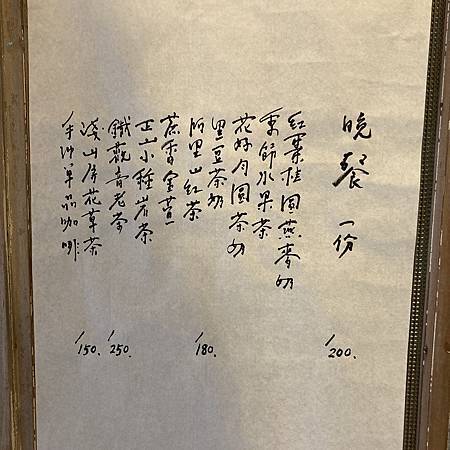 晚餐 一份 /200.
紅棗桂圓燕麥奶
季節水果茶
花好月圓茶奶
黑豆茶奶
阿里山紅茶 /180.
蔗香金萱
正山小種岩茶
鐵觀音老茶 /250.
淺山房花草茶 /150.
手沖單品咖啡